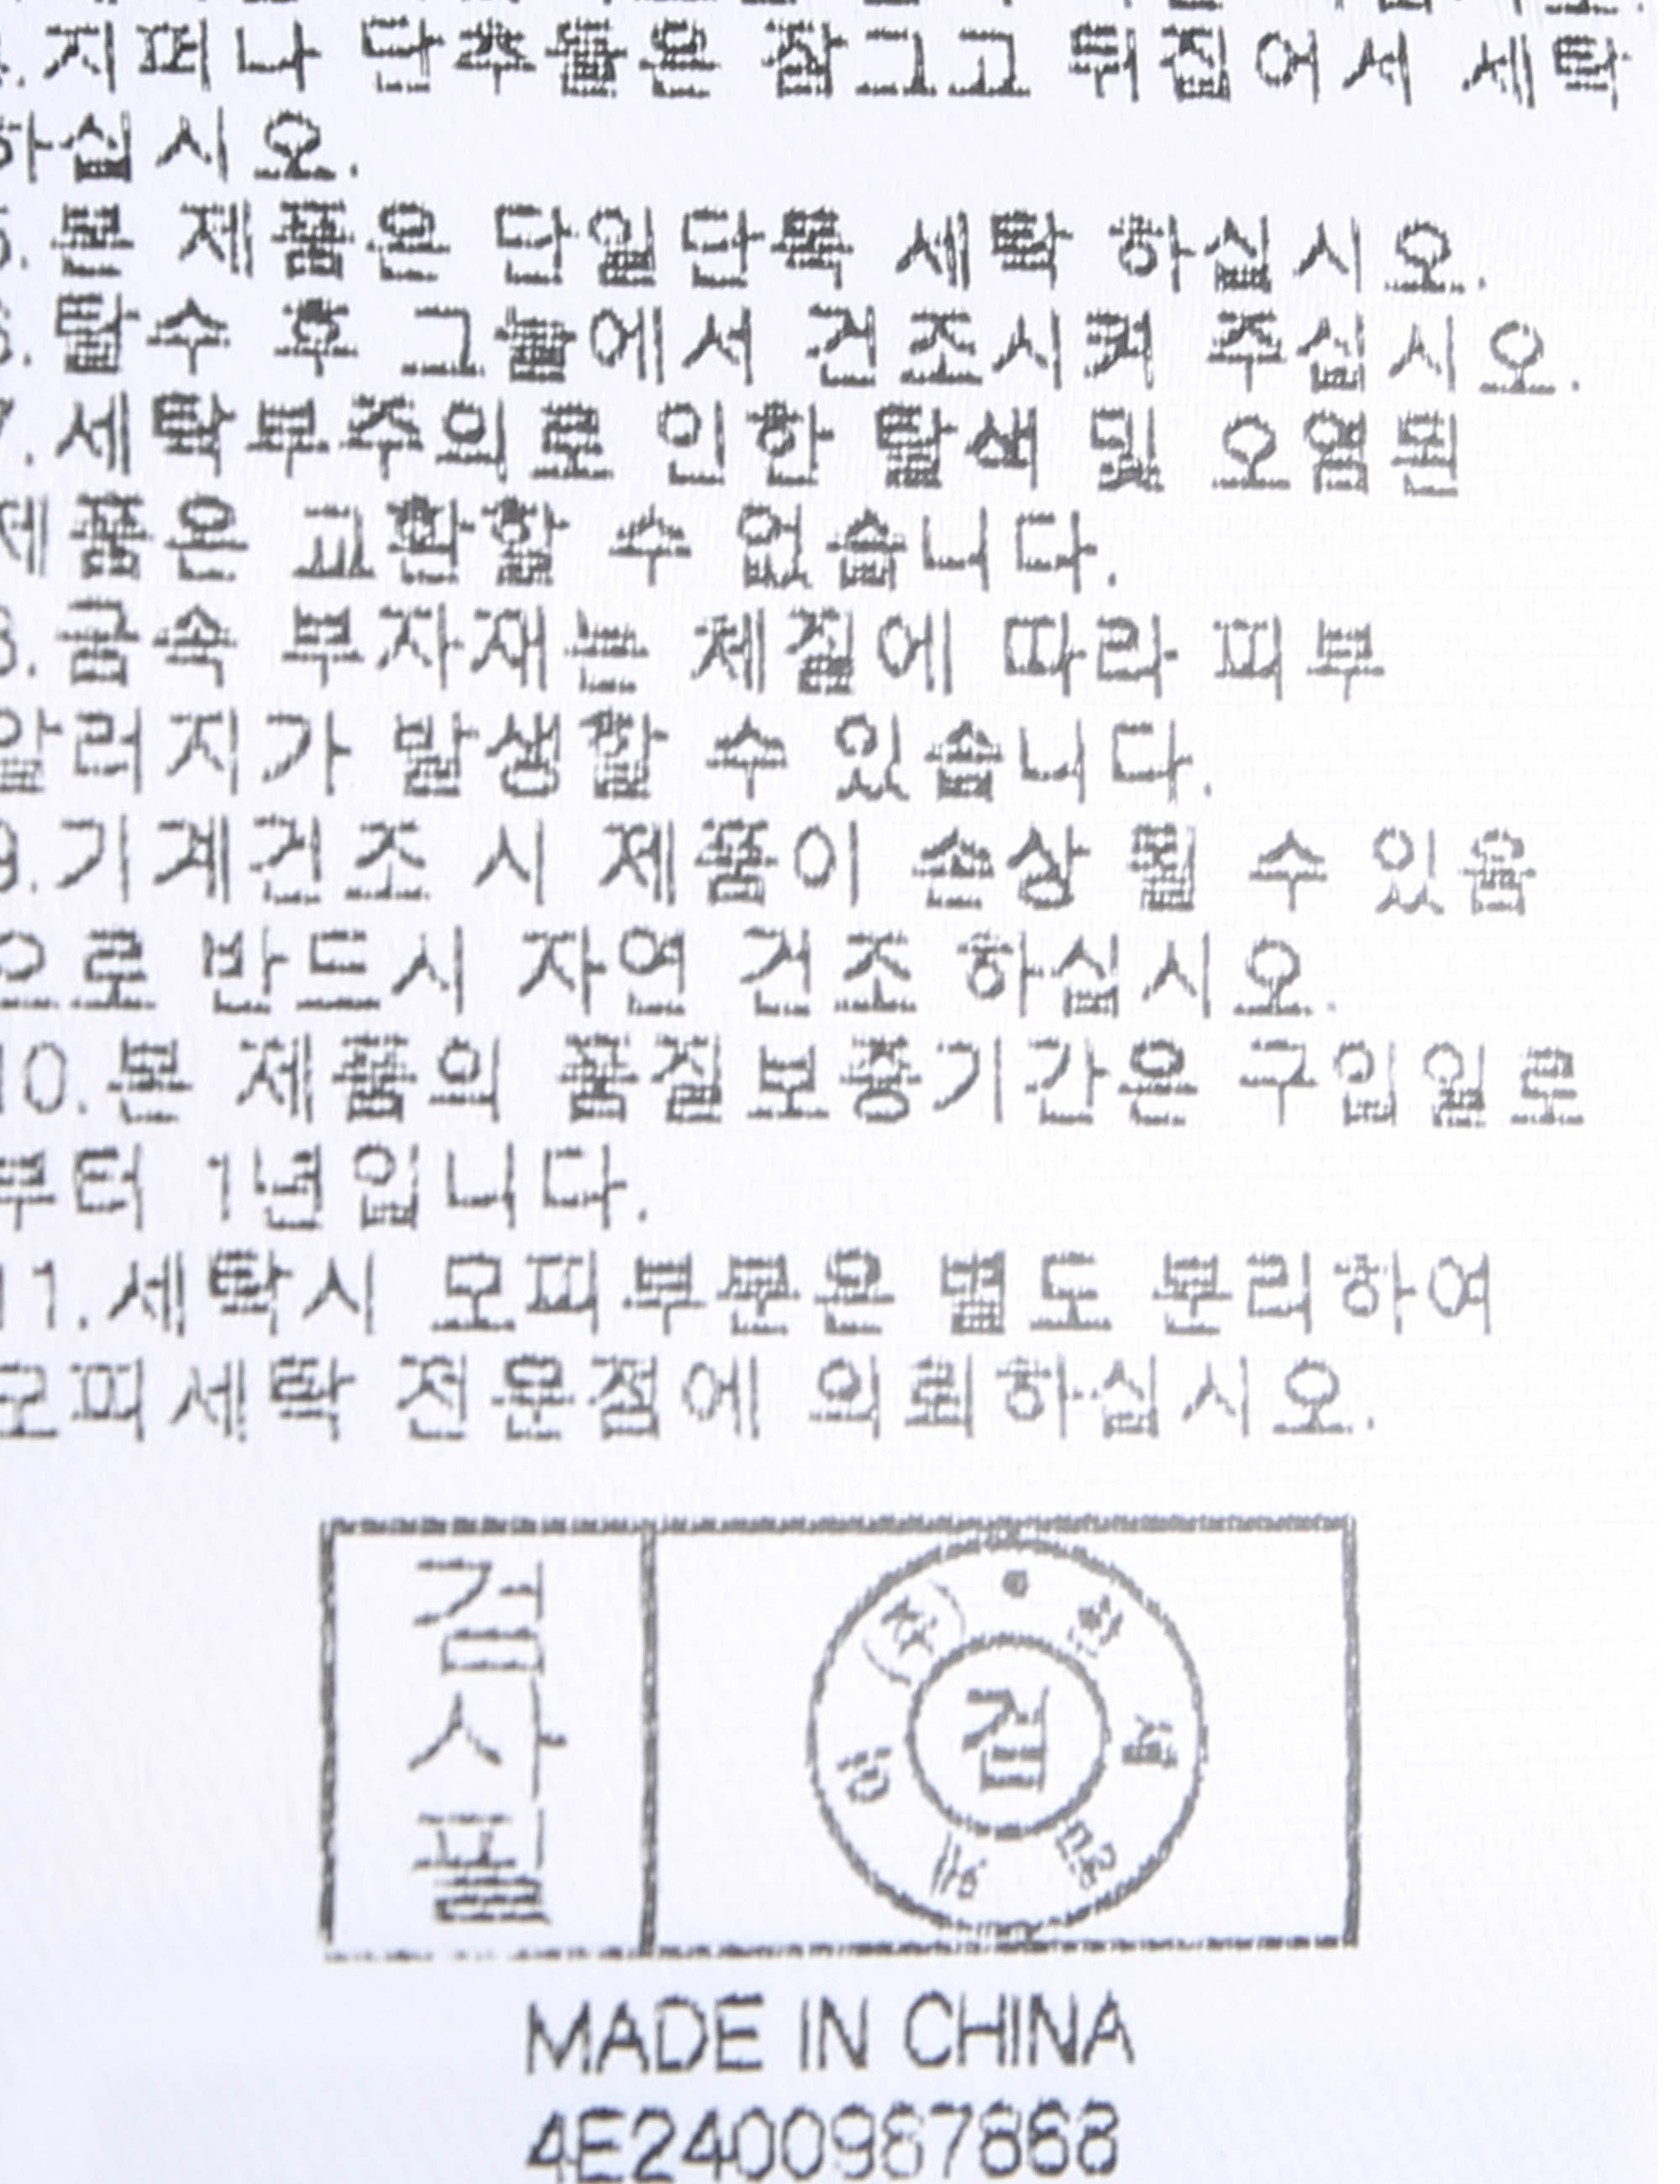 .지퍼나 단추들은 잠그고 뒤집어서 세탁
하십시오.
5.본 제품은 단일단독 세탁 하십시오.
6.탈수 후 그늘에서 건조시켜 주십시오.
7.세탁부주의로 인한 탈색 및 오염된
제품은 교환할 수 없습니다.
8.금속 부자재는 체질에 따라 피부
알러지가 발생할 수 있습니다.
9.기계건조 시 제품이 손상 될 수 있음
으로 반드시 자연 건조 하십시오.
10.본 제품의 품질보증기간은 구입일로
부터 1년입니다.
11.세탁시 모피부분은 별도 분리하여
모피세탁 전문점에 의뢰하십시오.
검사필
검
MADE IN CHINA
4E2400987868